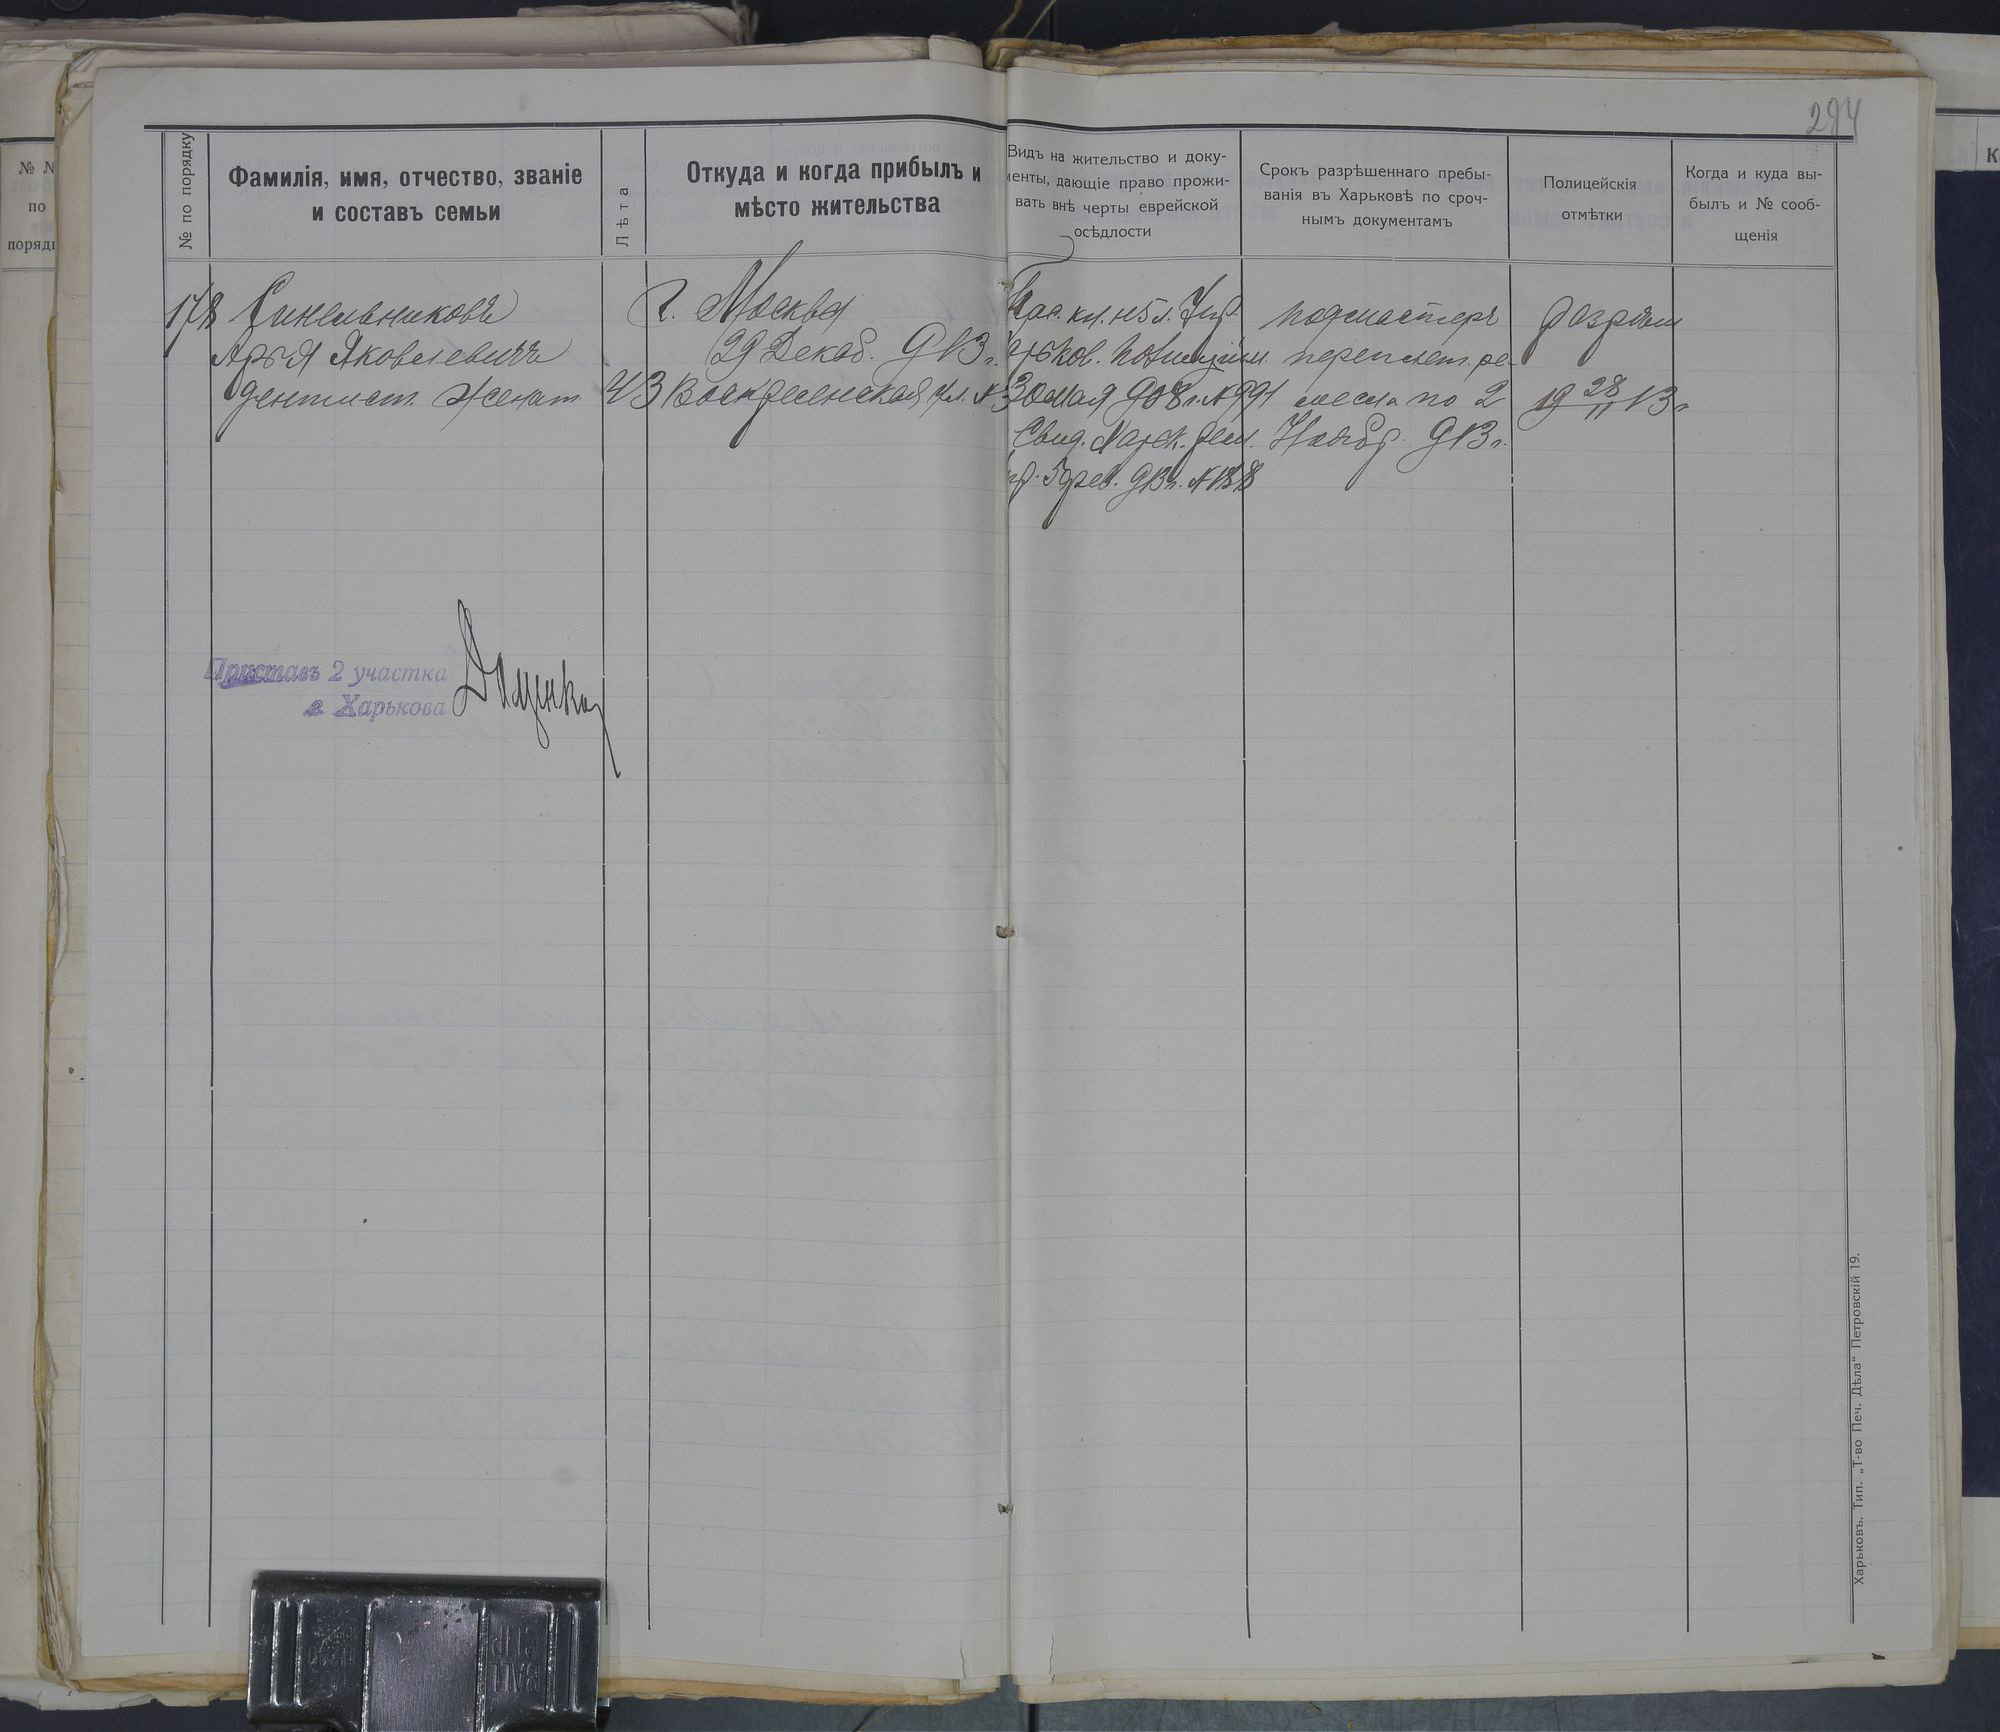 294
№ по порядку
Фамилія, имя, отчество, званіе
и составъ семьи
Лѣта
Откуда и когда прибылъ и
мѣсто жительства
Видъ на жительство и доку-
менты, дающіе право прожи-
вать внѣ черты еврейской
осѣдлости
Срокъ разрѣшеннаго пребы-
ванія въ Харьковѣ по сроч-
нымъ документамъ
Полицейскія
отмѣтки
Когда и куда вы-
былъ и № сооб-
щенія
178
Синельниковъ
Арья Яковлевичъ
дентист. женат
43
г. Москва
29 Декаб. 913 г.
Воскресенская ул. №
кн. н 5 л.
30 мая 908 г. № 991
Свид. Харьк. Рем.
Упр. 5 фев. 913 г. №
подмастеръ
переплет. ре
месла по 2
Ноябр. 913 г.
разряд
19 28/11 13 г
Приставъ 2 участка
г. Харькова
Харьковъ. Тип. „Т-во Печ. Дѣла" Петровскій 19.
№ №
по
поряд
BALL
CLIP